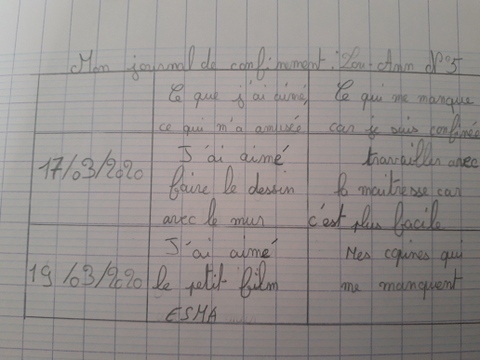 Mon journal de confinement : Lou-Ann N°5
Ce que j'ai aimé, Ce qui me manque
ce qui m'a amusée car je suis confinée
17/03/2020 J'ai aimé travailler avec
faire le dessin la maitresse car
avec le mur c'est plus facile
19/03/2020 J'ai aimé Mes copines qui
le petit film me manquent
ESMA